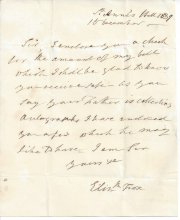 St Anne's Hill 1839
18 December
Sir I enclose you a check
for the amount of my bill
which I shall be glad to have
you receive safe - as you
say your Father is collecting
Autographs I have enclosed
you a few which he may
like to have. I am Sir
Yours &c
Elizth Fox